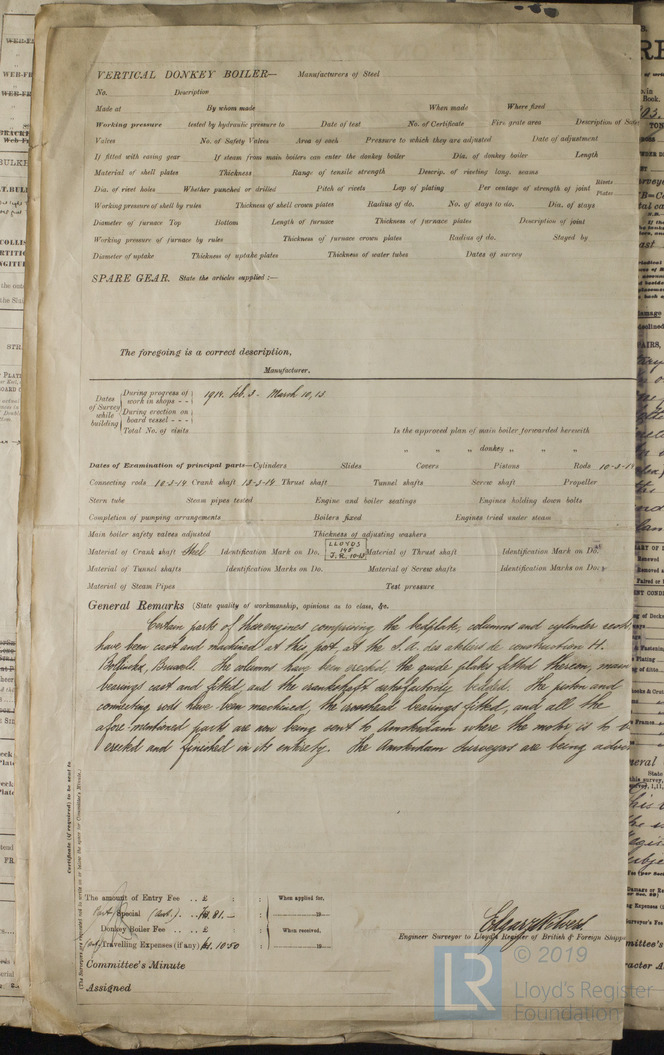 VERTICAL DONKEY BOILER— Manufacturers of Steel
No. Description
Made at By whom made When made Where fixed
Working pressure tested by hydraulic pressure to Date of test No. of Certificate Fire grate area Description of Safe
Valves No. of Safety Valves Area of each Pressure to which they are adjusted Date of adjustment
If fitted with easing gear If steam from main boilers can enter the donkey boiler Dia. of donkey boiler Length
Material of shell plates Thickness Range of tensile strength Descrip. of riveting long. seams
Dia. of rivet holes Whether punched or drilled Pitch of rivets Lap of plating Per centage of strength of joint Rivets Plates
Working pressure of shell by rules Thickness of shell crown plates Radius of do. No. of stays to do. Dia. of stays
Diameter of furnace Top Bottom Length of furnace Thickness of furnace plates Description of joint
Working pressure of furnace by rules Thickness of furnace crown plates Radius of do. Stayed by
Diameter of uptake Thickness of uptake plates Thickness of water tubes Dates of survey
SPARE GEAR. State the articles supplied:—
The foregoing is a correct description,
Manufacturer.
Dates of Survey while building
During progress of work in shops - - 1914. Feb. 3. March 10, 13
During erection on board vessel - - -
Total No. of visits
Is the approved plan of main boiler forwarded herewith
„ „ „ donkey „ „ „
Dates of Examination of principal parts—Cylinders Slides Covers Pistons Rods 10-3-1
Connecting rods 10-3-14 Crank shaft 13-3-14 Thrust shaft Tunnel shafts Screw shaft Propeller
Stern tube Steam pipes tested Engine and boiler seatings Engines holding down bolts
Completion of pumping arrangements Boilers fixed Engines tried under steam
Main boiler safety valves adjusted Thickness of adjusting washers
Material of Crank shaft Steel Identification Mark on Do. LLOYDS Material of Thrust shaft Identification Mark on Do.
Material of Tunnel shafts Identification Marks on Do. Material of Screw shafts Identification Marks on Do.
Material of Steam Pipes Test pressure
General Remarks (State quality of workmanship, opinions as to class, &c.
Certain parts of these engines comprising the bedplate, columns and cylinder
have been cast and machined at this port, at the S.A. des ateliers de construction H.
Bollinckx, Brussels. The columns have been erected, the guide plates fitted thereon, main
bearings cast and fitted, and the crankshaft satisfactorily bedded. The piston and
connecting rods have been machined, the crosshead bearings fitted, and all the
afore mentioned parts are now being sent to Amsterdam where the motor is to b
erected and finished in its entirety. The Amsterdam Surveyors are being advis
Certificate (if required) to be sent to
(The Surveyors are requested not to write on or below the space for Committee's Minute.)
The amount of Entry Fee . . £ : : When applied for,
Special . . 81.— 19
Donkey Boiler Fee . . £ When received,
Travelling Expenses (if any) 10.50 19
Engineer Surveyor to Lloyd's Register of British & Foreign Shipp
Committee's Minute
Assigned
LR © 2019
Lloyd's Register
Foundation